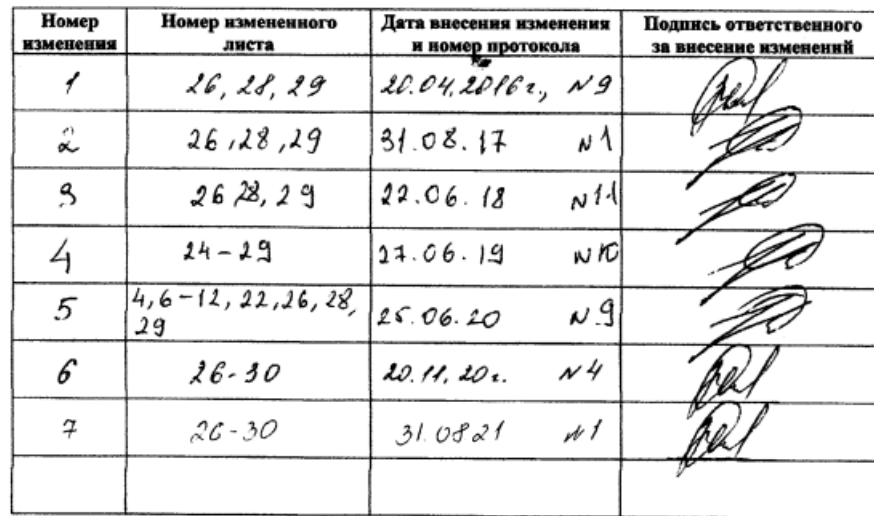 Номер изменения | Номер измененного листа | Дата внесения изменения и номер протокола | Подпись ответственного за внесение изменений
1 | 26, 28, 29 | 20.04.2016г., №9
2 | 26, 28, 29 | 31.08.17 №1
3 | 26 28, 29 | 22.06.18 №11
4 | 24-29 | 27.06.19 №10
5 | 4, 6-12, 22, 26, 28,
29 | 25.06.20 №9
6 | 26-30 | 20.11.20г. №4
7 | 26-30 | 31.08 21 №1